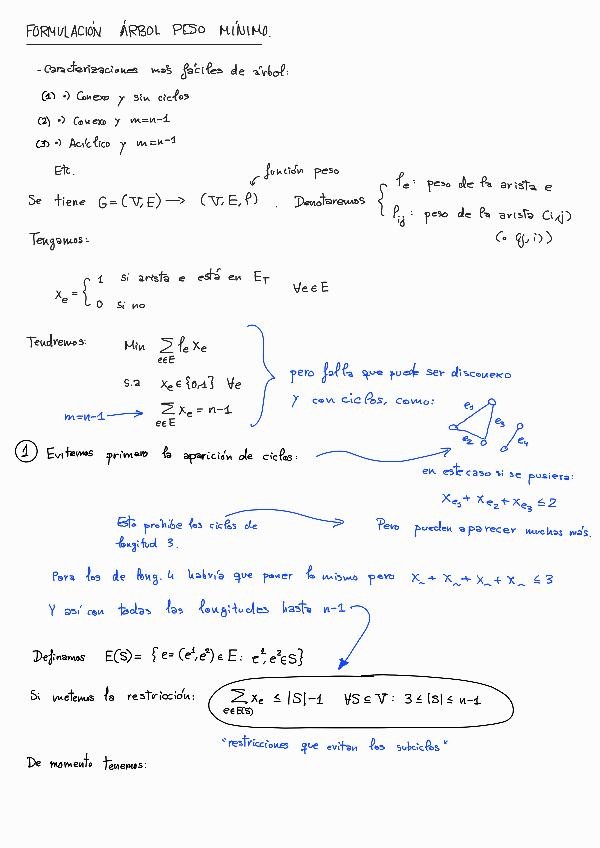 FORMULACIÓN ÁRBOL PESO MÍNIMO.
- Caracterizaciones más fáciles de árbol:
(1) •) Conexo y sin ciclos
(2) •) Conexo y m=n-1
(3) •) Acíclico y m=n-1
Etc.
función peso
Se tiene G=(V,E) → (V,E,p). Denotaremos { pe: peso de la arista e
pij: peso de la arista (i,j)
(o (j,i))
Tengamos:
xe = { 1 si arista e está en ET
0 si no
∀e∈E
Tendremos: Min ∑e∈E pe xe
s.a xe∈{0,1} ∀e
m=n-1 → ∑e∈E xe = n-1
pero falla que puede ser disconexo
y con ciclos, como:
e1 e2 e3 e4
① Evitemos primero la aparición de ciclos:
en este caso si se pusiera:
xe1 + xe2 + xe3 ≤ 2
Esto prohibe los ciclos de
longitud 3.
Pero pueden aparecer muchos más.
Para los de long. 4 habría que poner lo mismo pero x~ + x~ + x~ + x~ ≤ 3
Y así con todas las longitudes hasta n-1
Definamos E(S) = {e=(e¹,e²)∈E: e¹,e²∈S}
Si metemos la restricción: ∑e∈E(S) xe ≤ |S|-1 ∀S⊆V: 3≤|S|≤n-1
"restricciones que evitan los subciclos"
De momento tenemos: